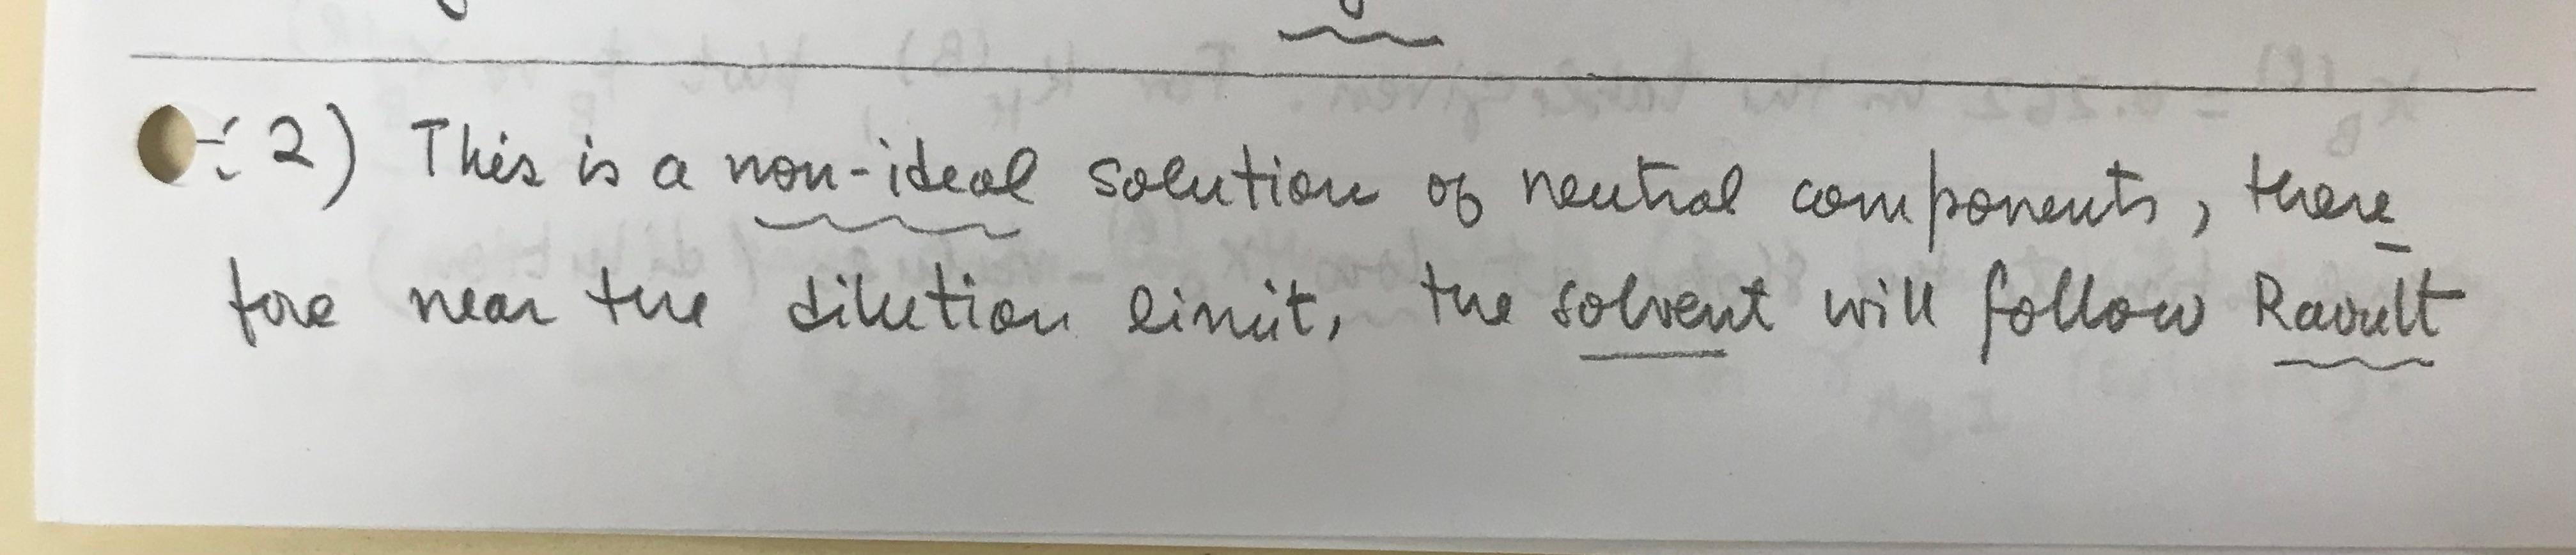 2) This is a non-ideal solution of neutral components, there
fore near the dilution limit, the solvent will follow Raoult